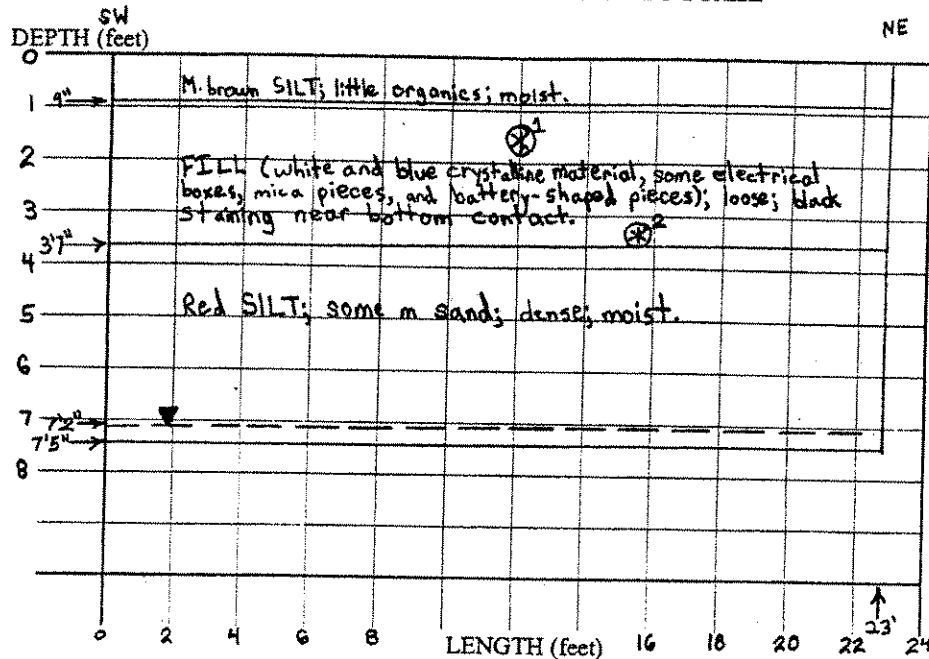 SW
NE
DEPTH (feet)
0
M. brown SILT; little organics; moist.
1 9"
1
2
FILL (white and blue crystalline material, some electrical
boxes, mica pieces, and battery-shaped pieces); loose; black
3
staining near bottom contact.
2
3'7"
4
5
Red SILT; some m sand; dense; moist.
6
7
7'2"
7'5"
8
23'
0 2 4 6 8 LENGTH (feet) 16 18 20 22 24